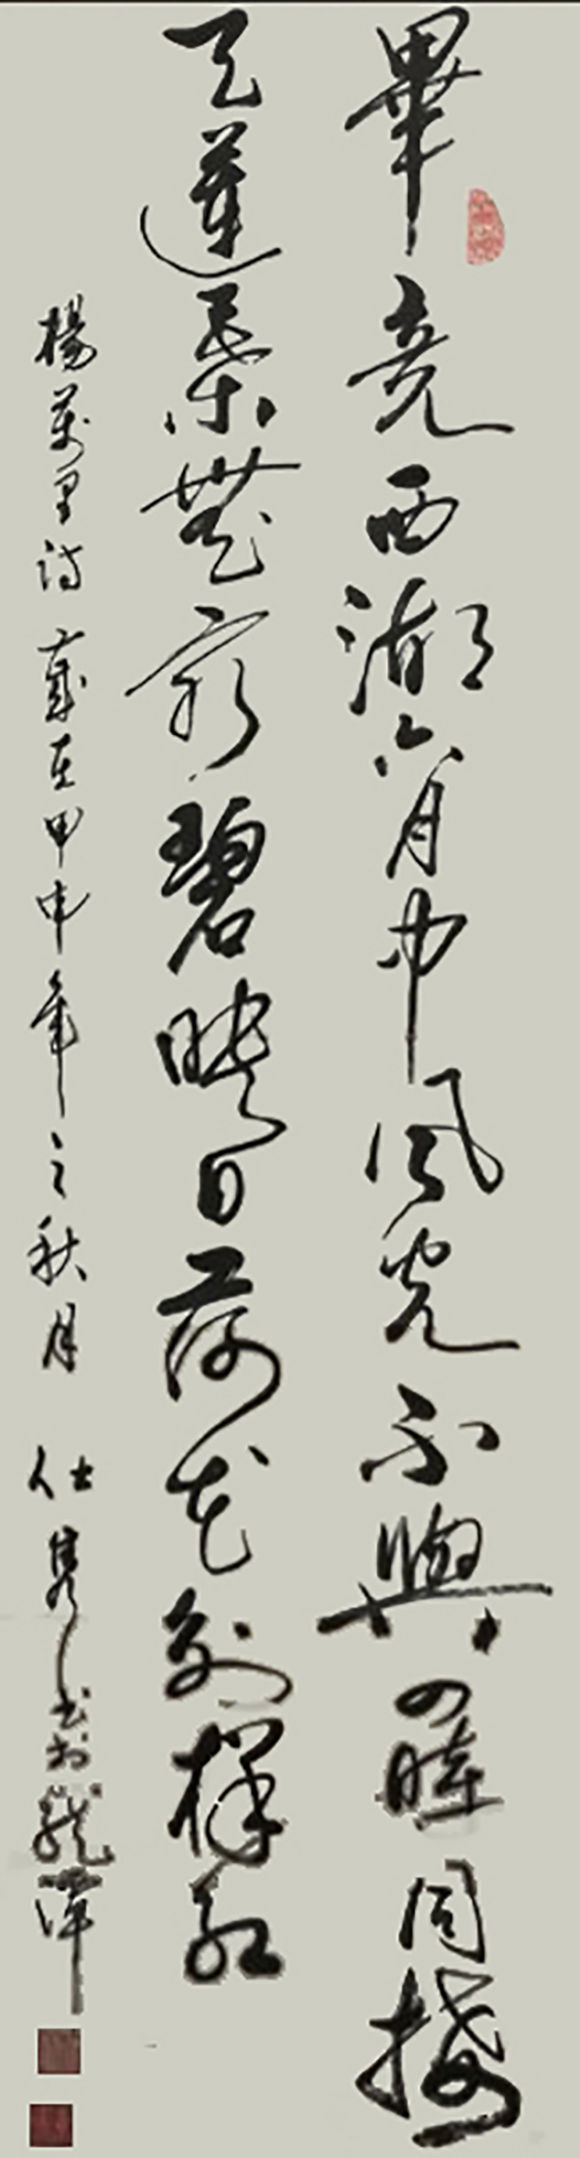 畢竟西湖六月中風光不與四時同接
天蓮葉無窮碧映日荷花別樣紅
楊萬里詩 歲在甲申年之秋月 仕隽书於龍潭